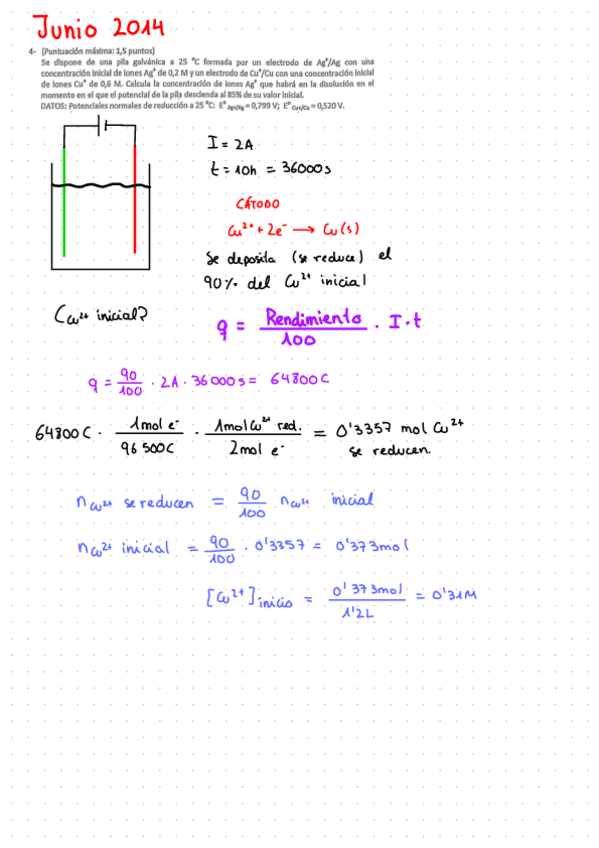 Junio 2014
4- (Puntuación máxima: 1,5 puntos)
Se dispone de una pila galvánica a 25 °C formada por un electrodo de Ag⁺/Ag con una
concentración inicial de iones Ag⁺ de 0,2 M y un electrodo de Cu⁺/Cu con una concentración inicial
de iones Cu⁺ de 0,6 M. Calcula la concentración de iones Ag⁺ que habrá en la disolución en el
momento en el que el potencial de la pila descienda al 85% de su valor inicial.
DATOS: Potenciales normales de reducción a 25 °C: E° Ag+/Ag = 0,799 V; E° Cu+/Cu = 0,520 V.
I = 2A
t = 10h = 36000s
CÁTODO
Cu²⁺ + 2e⁻ → Cu(s)
Se deposita (se reduce) el
90% del Cu²⁺ inicial
C Cu²⁺ inicial?
q = Rendimiento/100 · I·t
q = 90/100 · 2A · 36000s = 64800C
64800C · 1mol e⁻/96500C · 1mol Cu²⁺ red./2mol e⁻ = 0'3357 mol Cu²⁺
se reducen.
n Cu²⁺ se reducen = 90/100 n Cu²⁺ inicial
n Cu²⁺ inicial = 90/100 · 0'3357 = 0'373mol
[Cu²⁺] inicio = 0'373mol/1'2L = 0'31M